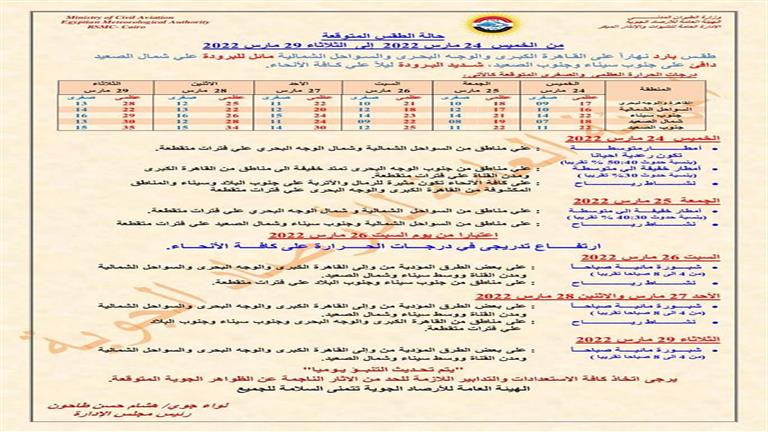 Ministry of Civil Aviation
Egyptian Meteorological Authority
RSMC- Cairo
وزارة الطيران المدنى
الهيئة العامة للأرصاد الجوية
حالة الطقس المتوقعة
من الخميس 24 مارس 2022 إلى الثلاثاء 29 مارس 2022
طقس بارد نهاراً على القاهرة الكبرى والوجه البحرى والسواحل الشمالية مائل للبرودة على شمال الصعيد
دافئ على جنوب سيناء وجنوب الصعيد، شديد البرودة ليلاً على كافة الأنحاء.
درجات الحرارة العظمى والصغرى المتوقعة كالآتى:
المنطقة الخميس 24 مارس الجمعة 25 مارس السبت 26 مارس الأحد 27 مارس الإثنين 28 مارس الثلاثاء 29 مارس
عظمى صغرى عظمى صغرى عظمى صغرى عظمى صغرى عظمى صغرى عظمى صغرى
القاهرة والوجه البحرى 17 09 18 10 21 10 22 11 25 12 28 13
السواحل الشمالية 16 10 17 12 18 12 20 12 22 14
جنوب سيناء 22 11 21 14 23 14 24 15 26 16 29 16
شمال الصعيد 18 07 19 08 22 09 24 11 30 12 31 13
جنوب الصعيد 22 11 22 11 25 12 30 14 34 15 35 15
الخميس 24 مارس 2022
أمطار متوسطة : على مناطق من السواحل الشمالية وشمال الوجه البحري على فترات متقطعة.
تكون رعدية أحيانا
(بنسبة حدوث 50:40 % تقريبا)
أمطار خفيفة الى متوسطة : على مناطق من جنوب الوجه البحرى تمتد خفيفة الى مناطق من القاهرة الكبرى
(بنسبة حدوث 30% تقريبا) ومدن القناة على فترات متقطعة.
نشاط رياح : على كافة الأنحاء تكون مثيرة للرمال والأتربة على جنوب البلاد وسيناء والمناطق
المكشوفة من القاهرة الكبرى على فترات متقطعة
الجمعة 25 مارس 2022
أمطار خفيفة الى متوسطة : على مناطق من السواحل الشمالية و شمال الوجه البحري على فترات متقطعة.
(بنسبة حدوث 40:30 % تقريبا)
نشاط رياح : على مناطق من السواحل الشمالية وجنوب سيناء وشمال الصعيد على فترات متقطعة
اعتبارا من يوم السبت 26 مارس 2022
ارتفاع تدريجى فى درجات الحرارة على كافة الأنحاء.
السبت 26 مارس 2022
شبورة مائية صباحاً : على بعض الطرق المؤدية من وإلى القاهرة الكبرى والوجه البحرى والسواحل الشمالية
(من 4 الى 8 صباحا تقريبا) ومدن القناة ووسط سيناء وشمال الصعيد.
نشاط رياح : على مناطق من جنوب سيناء وجنوب البلاد على فترات متقطعة.
الأحد 27 مارس والاثنين 28 مارس 2022
شبورة مائية صباحاً : على بعض الطرق المؤدية من وإلى القاهرة الكبرى والوجه البحرى والسواحل الشمالية
(من 4 الى 8 صباحا تقريبا) ومدن القناة ووسط سيناء وشمال الصعيد.
نشاط رياح : على مناطق من القاهرة الكبرى والوجه البحرى وجنوب سيناء وجنوب البلاد
على فترات متقطعة.
الثلاثاء 29 مارس 2022
شبورة مائية صباحاً : على بعض الطرق المؤدية من وإلى القاهرة الكبرى والوجه البحرى والسواحل الشمالية
(من 4 الى 8 صباحا تقريبا) ومدن القناة ووسط سيناء وشمال الصعيد.
"يتم تحديث التنبؤ يوميا"
يرجى اتخاذ كافة الاستعدادات والتدابير اللازمة للحد من الآثار الناجمة عن الظواهر الجوية المتوقعة.
الهيئة العامة للأرصاد الجوية تتمنى السلامة للجميع
لواء جوى/ هشام حسن طاحون
رئيس مجلس الإدارة